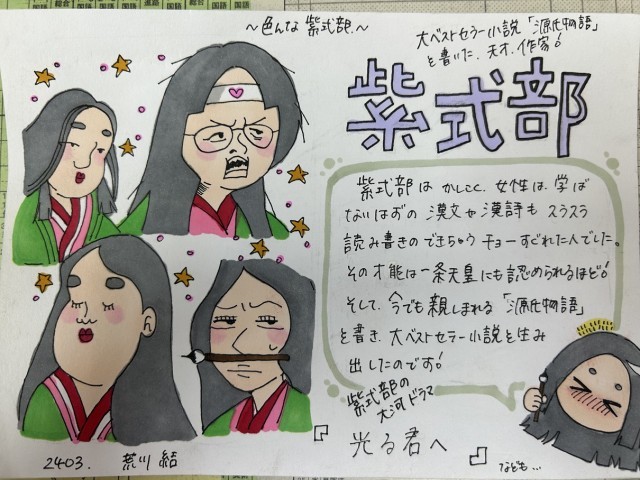 〜色んな 紫式部〜
大ベストセラー小説「源氏物語」
を書いた、天才、作家!
紫式部
紫式部は かしこく、女性は、学ば
ないはずの 漢文や漢詩も スラスラ
読み書きのできちゃう チョーすぐれた人でした。
その才能は一条天皇にも認められるほど!
そして、今でも親しまれる「源氏物語」
を書き、大ベストセラー小説を生み
出したのです!
紫式部の
大河ドラマ
「光る君へ」
なども…
2403. 荒川 結
総合
国語
国語
国語
国語